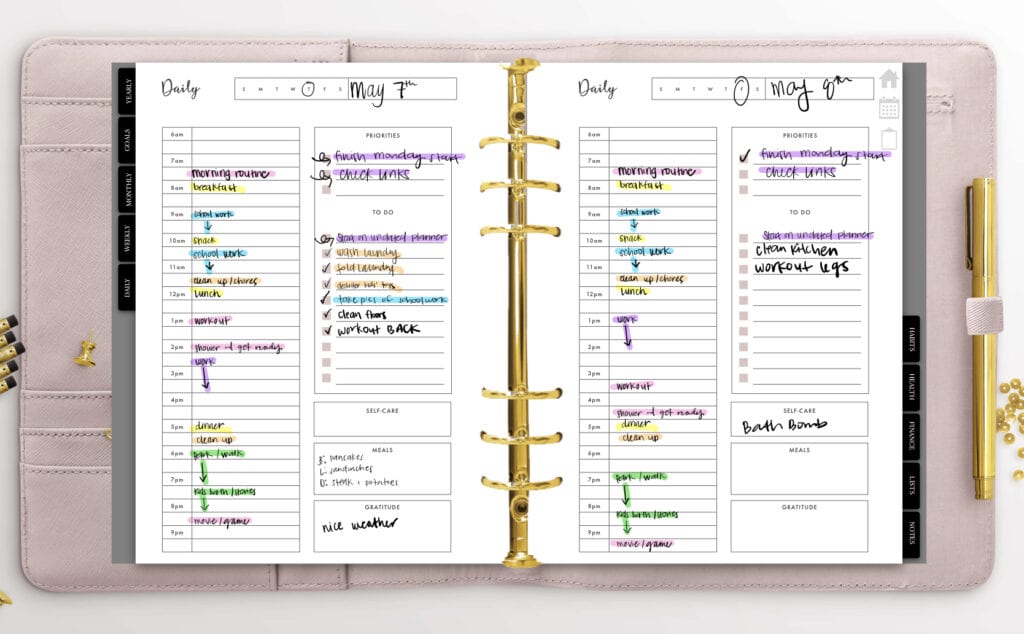 YEARLY
GOALS
MONTHLY
WEEKLY
DAILY
Daily
S M T W T F S
May 7th
6am
7am
morning routine
8am
breakfast
9am
school work
10am
snack
school work
11am
clean up/chores
12pm
lunch
1pm
workout
2pm
shower + get ready
work
3pm
4pm
5pm
dinner
clean up
6pm
park / walk
7pm
kids bath / stories
8pm
movie / game
9pm
PRIORITIES
finish monday start
check links
TO DO
start on undated planner
wash laundry
fold laundry
declutter kids' toys
take pics of school work
clean floors
workout BACK
SELF-CARE
MEALS
B: pancakes
L: sandwiches
D: steak + potatoes
GRATITUDE
nice weather
Daily
S M T W T F S
May 8th
6am
7am
morning routine
8am
breakfast
9am
school work
10am
snack
school work
11am
clean up/chores
12pm
lunch
1pm
work
2pm
3pm
workout
4pm
shower + get ready
5pm
dinner
clean up
6pm
park / walk
7pm
8pm
kids bath / stories
9pm
movie / game
PRIORITIES
finish monday start
check links
TO DO
start on undated planner
clean kitchen
workout legs
SELF-CARE
Bath Bomb
MEALS
GRATITUDE
HABITS
HEALTH
FINANCE
LISTS
NOTES